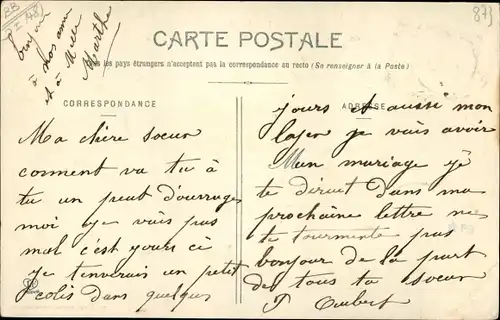 bonjour
à nos amie
et à Melle
Marthe
873
CARTE POSTALE
les pays étrangers n'acceptent pas la correspondance au recto (Se renseigner à la Poste)
CORRESPONDANCE
Ma chère soeur
comment va tu à
tu un peut d'ouvrages
moi je vais pas
mal c'est yours ci
je tenverais un petit
colis dans quelques
ADRESSE
jours et aussi mon
je vais avoir
Mon mariage je
te dirait dans ma
prochaine lettre ne
te tourmente pas
bonjour de la part
de tous ta soeur